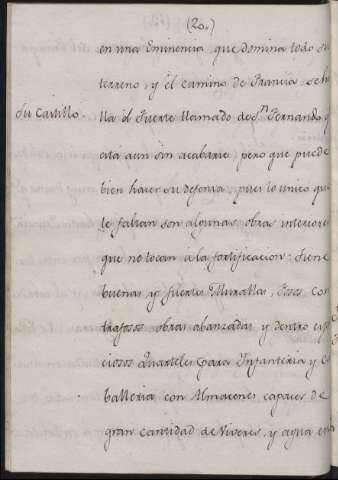 (20.)
en una Eminencia que domina todo su
terreno, y el camino de Francia se ha
Su Castillo.
lla el Fuerte llamado de Sn. Fernando, y
está aun sin acabarse, pero que puede
bien hacer su defensa, pues lo unico que
le faltan son algunas obras interiore
que no tocan a la fortificacion: tiene
buenas y fuertes Murallas, fosos con
trafosos obras abanzadas y dentro espa
ciosos Quarteles para Infanteria y Ca
balleria con Almacenes capaces de
gran cantidad de Viveres, y agua en